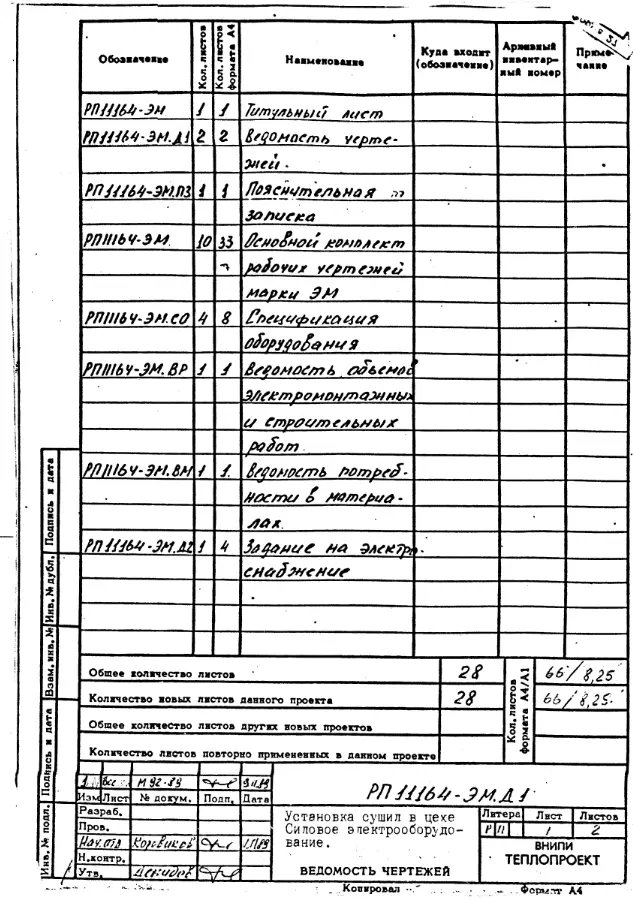 Обозначение Кол. листов Кол. листов формата А4 Наименование Куда входит (обозначение) Архивный инвентарный номер Примечание
РП11164-ЭМ 1 1 Титульный лист
РП11164-ЭМ.Д1 2 2 Ведомость черте-
жей.
РП11164-ЭМ.ПЗ 1 1 Пояснительная
записка
РП11164-ЭМ. 10 33 Основной комплект
рабочих чертежей
марки ЭМ
РП11164-ЭМ.СО 4 8 Спецификация
оборудования
РП11164-ЭМ.ВР 1 1 Ведомость объемов
электромонтажных
и строительных
работ
РП11164-ЭМ.ВМ 1 1. Ведомость потреб-
ности в материа-
лах.
РП11164-ЭМ.Д2 1 4 Задание на электро-
снабжение
Общее количество листов 28 Кол. листов формата А4/А1 66/8,25
Количество новых листов данного проекта 28 66/8,25.
Общее количество листов других новых проектов
Количество листов повторно примененных в данном проекте
Инв. № подл. Подпись и дата Взам. инв. № Инв. № дубл. Подпись и дата
1 Все М92-89
Изм Лист № докум. Подп. Дата
РП11164-ЭМ.Д1
Разраб.
Пров.
Нач. отд
Н.контр.
Утв.
Установка сушил в цехе
Силовое электрооборудо-
вание.
ВЕДОМОСТЬ ЧЕРТЕЖЕЙ
Литера Лист Листов
Р П 1 2
ВНИПИ
ТЕПЛОПРОЕКТ
Копировал Формат А4